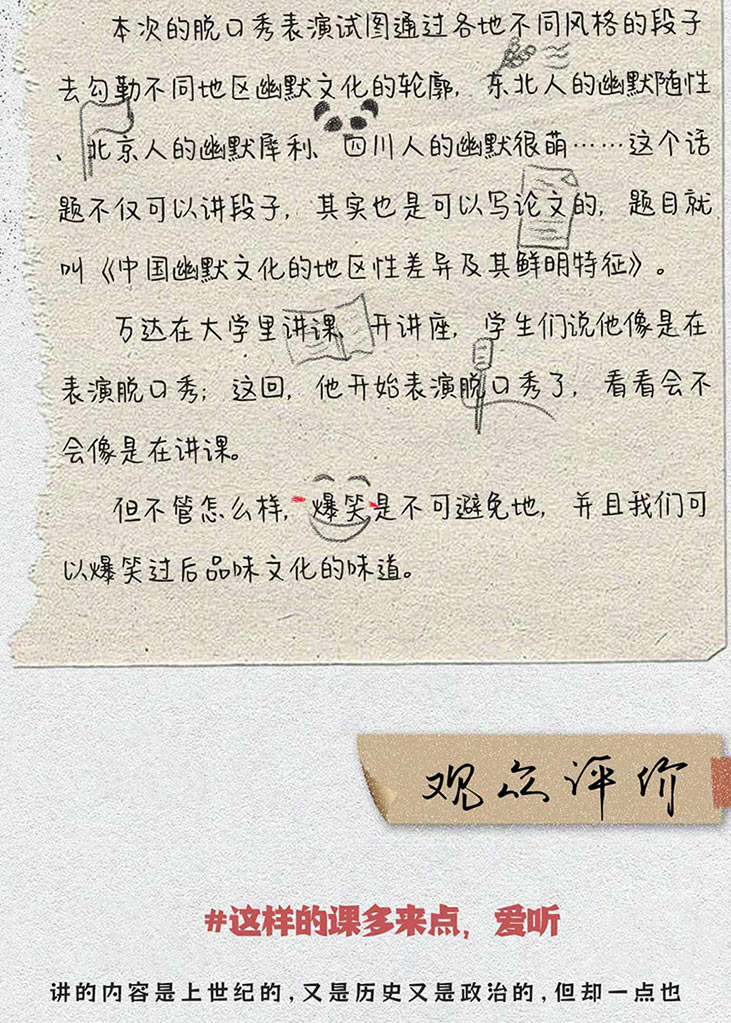 本次的脱口秀表演试图通过各地不同风格的段子
去勾勒不同地区幽默文化的轮廓，东北人的幽默随性
、北京人的幽默犀利、四川人的幽默很萌……这个话
题不仅可以讲段子，其实也是可以写论文的，题目就
叫《中国幽默文化的地区性差异及其鲜明特征》。
万达在大学里讲课、开讲座，学生们说他像是在
表演脱口秀；这回，他开始表演脱口秀了，看看会不
会像是在讲课。
但不管怎么样，爆笑是不可避免地，并且我们可
以爆笑过后品味文化的味道。
观众评价
#这样的课多来点，爱听
讲的内容是上世纪的,又是历史又是政治的,但却一点也